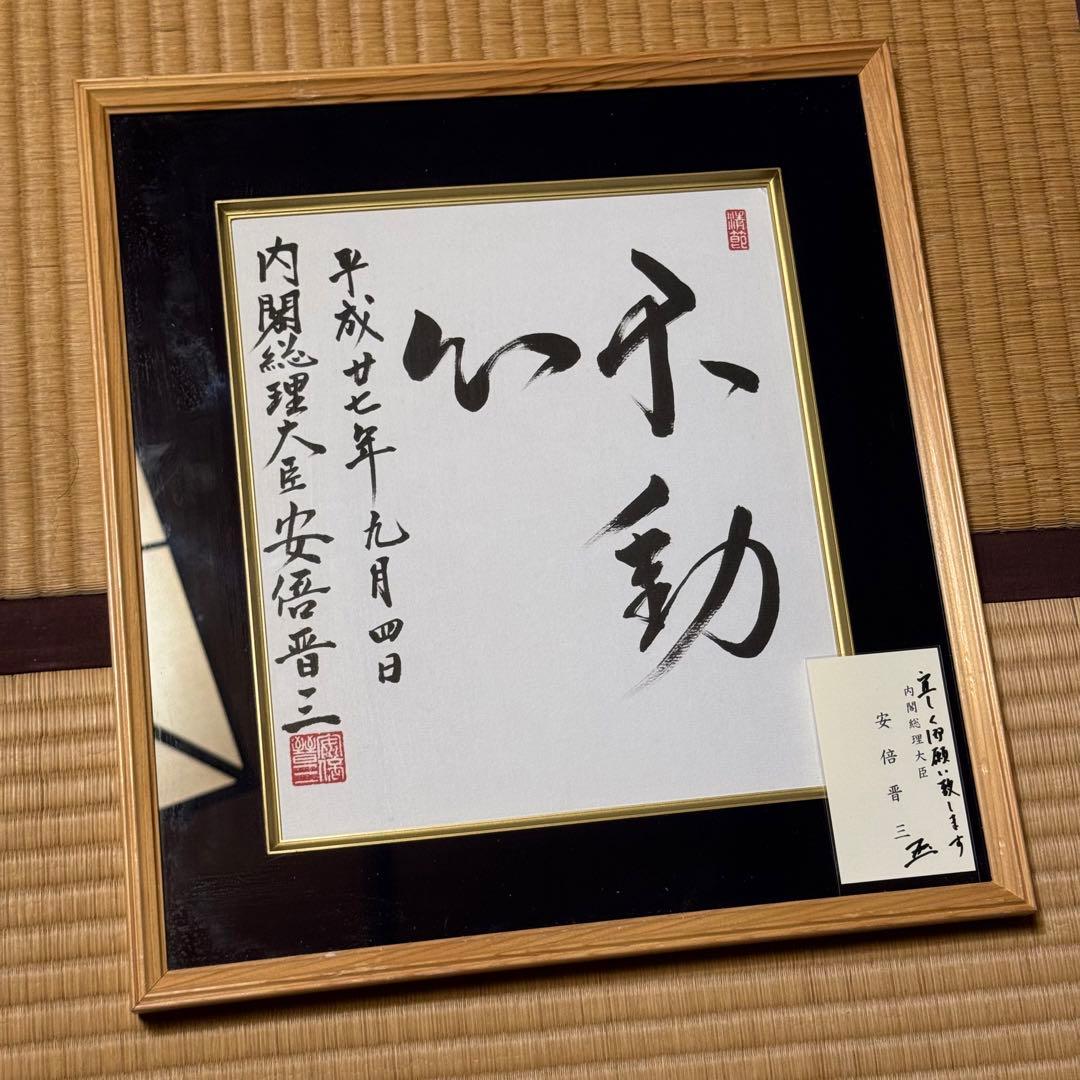 清節
不動
心
平成廿七年九月四日
内閣総理大臣安倍晋三
安倍晋三
宜しく御願い致します
内閣総理大臣
安倍晋三